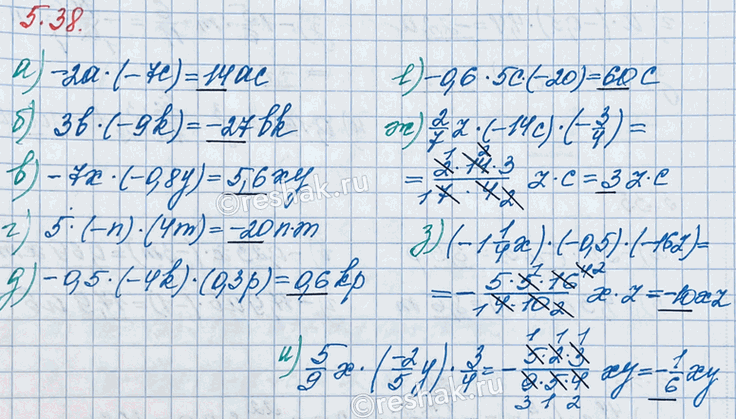 5.38.
а) -2a·(-7c)=14ac
б) 3b·(-9k)=-27bk
в) -7x·(-0,8y)=5,6xy
г) 5·(-n)·(4m)=-20n·m
д) -0,5·(-4k)·(0,3p)=0,6kp
е) -0,6·5c·(-20)=60c
ж) 2/7 z·(-14c)·(-3/4)=
= 2·14·3/7·4 z·c=3z·c
1 2
1 2
з) (-1 1/4 x)·(-0,5)·(-16z)=
= - 5·5·16/4·10 x·z=-10xz
1 4 2
1 2
и) 5/9 x·(-2/5 y)·3/4= - 5·2·3/9·5·4 xy=-1/6 xy
1 1 1
3 1 2
©reshak.ru
©reshak.ru
©reshak.ru